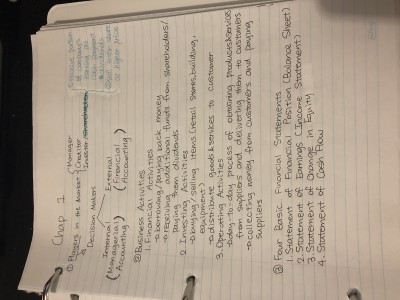 Chap 1
① Players in the Market
Manager
Creditor
Investor
receive portion
of company's
earning as
cash payment
→ dividends
sell their asset
at higher price
→ Decision Makers
Internal
(Managerial
Accounting)
External
(Financial
Accounting)
② Business Activities
1. Financial Activities
→ borrowing/paying back money
→ receiving additional funds from shareholders/
paying them dividends
2. Investing Activities
→ buying/selling items (retail stores, building,
equipment)
→ distribute goods & services to customer
3. Operating Activities
→ day-to-day process of obtaining products & services
from suppliers and delivering them to customers
→ collecting money from customers and paying
suppliers
③ Four Basic Financial Statements
1. Statement of Financial Position (Balance Sheet)
2. Statement of Earnings (Income Statement)
3. Statement of Change in Equity
4. Statement of Cash Flow